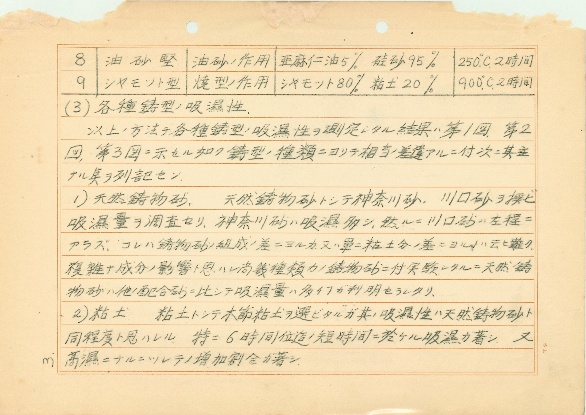 8 油砂堅 油砂ノ作用 亜麻仁油5% 硅砂95% 250℃ 2時間
9 シャモット型 焼型ノ作用 シャモット80% 粘土20% 900℃ 2時間
(3) 各種鋳型ノ吸濕性.
以上ノ方法デ各種鋳型ノ吸濕性ヲ測定シタル結果ハ第1回 第2
回 第3回ニ示セル如ク鋳型ノ種類ニヨリテ相当差違アルニ付次ニ其主
ナル臭ヲ列記セン.
1) 天然鋳物砂. 天然鋳物砂トシテ神奈川砂. 川口砂ヲ撰ビ
吸濕量ヲ調査セリ. 神奈川砂ハ吸濕多シ. 然ルニ川口砂ハ左程ニ
アラズ. コレハ鋳物砂ノ組成ノ差ニヨルカ又ハ單ニ粘土分ノ差ニヨルハ云ヒ難ク
複雑ナ成分ノ影響ト思ハレ尚幾種類カノ鋳物砂ニ付実験シタルニ天然鋳
物砂ハ他ノ配合砂ニ比シテ吸濕量ハ多イ丁ガ判明セラレタリ.
2) 粘土 粘土トシテ木節粘土ヲ選ビタルガ其ノ吸濕性ハ天然鋳物砂ト
同程度ト思ハレル 特ニ6時間位迄ノ短時間ニ於ケル吸濕力著シ 又
高濕ニナルニツレテノ増加割合カ著シ.
3.